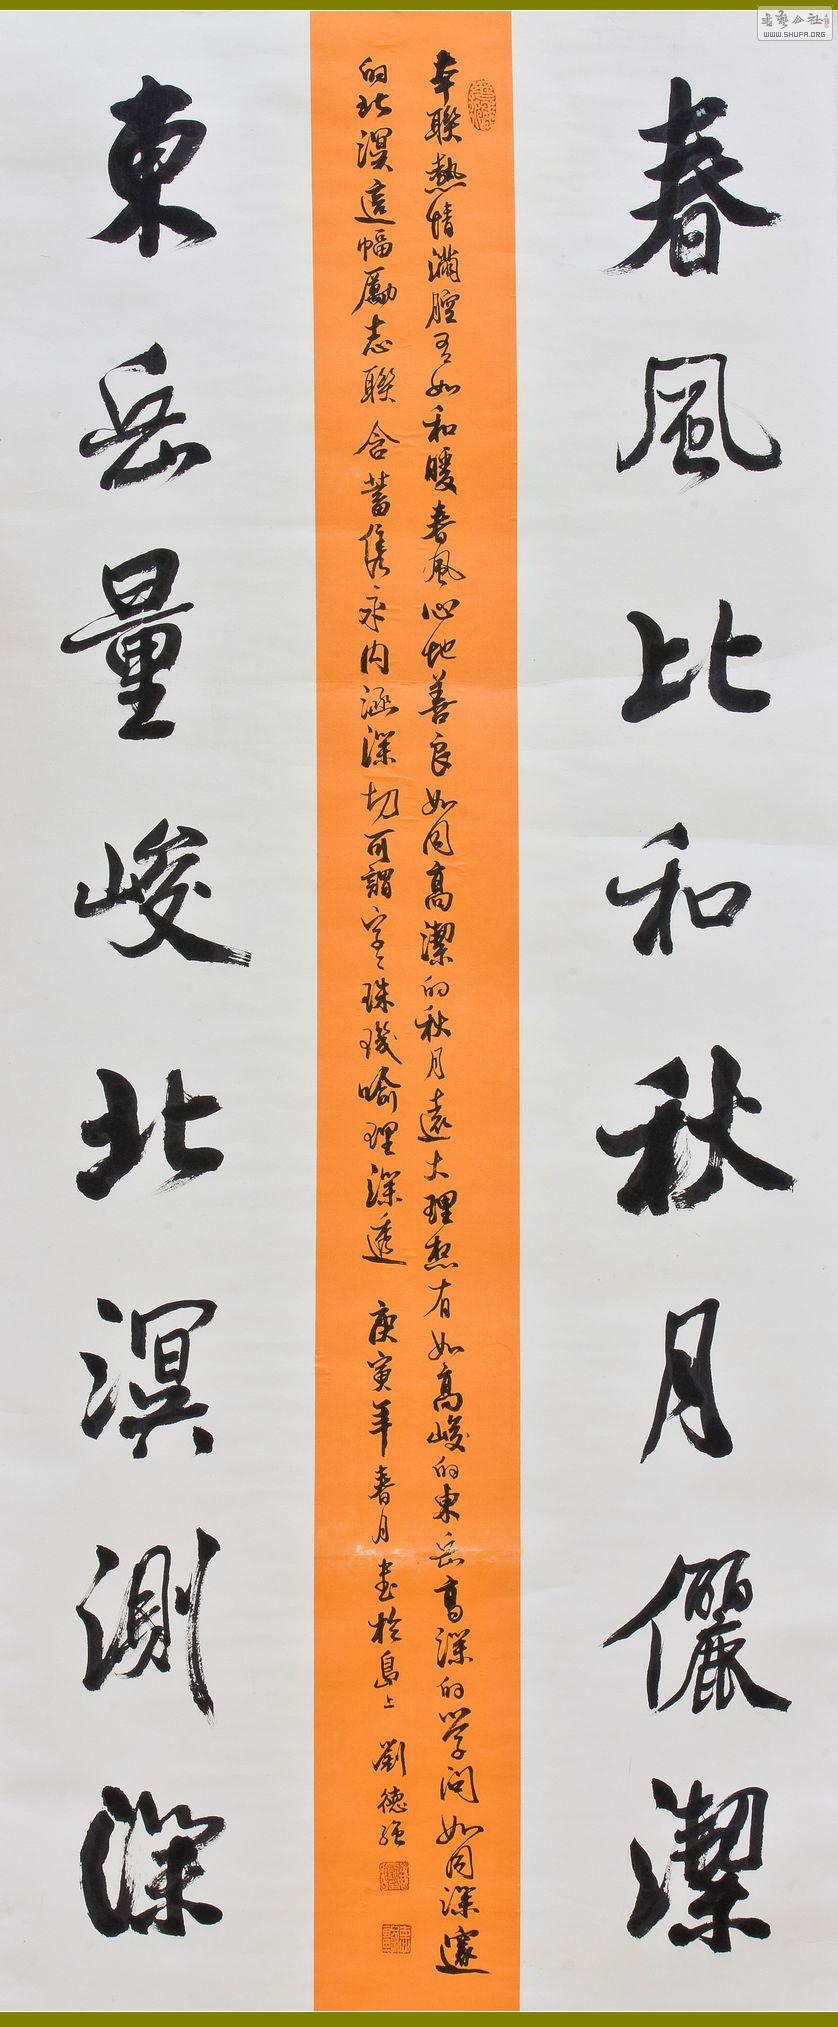 春風比和秋月儷潔
本聯熱情滿腔有如和暖春風心地善良如同高潔的秋月遠大理想有如高峻的東岳高深的学问如同深邃
的北溟這幅勵志聯含蓄雋永内涵深切可謂字字珠璣喻理深透 庚寅年春月書於島上 劉德强
東岳量峻北溟測深
WWW.SHUFA.ORG